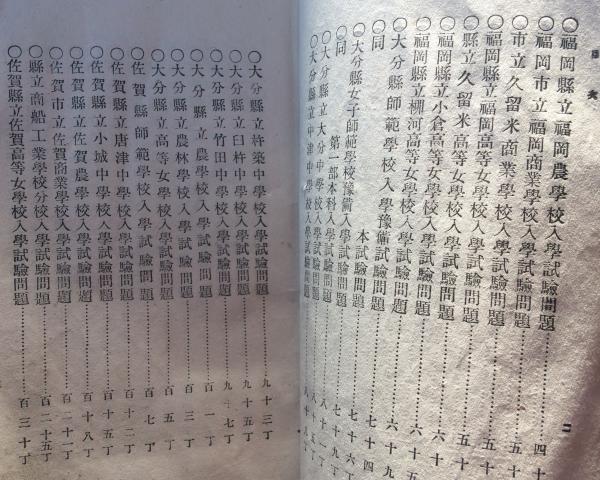 目次
二
○福岡縣立福岡農學校入學試驗問題…………四十
○福岡市立福岡商業學校入學試驗問題…………四十
○市立久留米商業學校入學試驗問題…………五十
○福岡縣立福岡高等女學校入學試驗問題…………五十
○縣立久留米高等女學校入學試驗問題…………五十
○福岡縣立小倉高等女學校入學試驗問題…………六十
○福岡縣立柳河高等女學校入學試驗問題…………六十
○大分縣師範學校入學豫備試驗問題…………六十
○同 本試驗問題…………七十四
○大分縣女子師範學校豫備入學試驗問題…………七十六丁
○同 第一部本科入學試驗問題…………七十九丁
○大分縣立大分中學校入學試驗問題…………八十丁
○大分縣立中津中學校入學試驗問題…………八十
○大分縣立杵築中學校入學試驗問題…………九十三丁
○大分縣立臼杵中學校入學試驗問題…………九十五丁
○大分縣立竹田中學校入學試驗問題…………九十七丁
○大分縣立農學校入學試驗問題…………百一丁
○大分縣立農林學校入學試驗問題…………百三丁
○大分縣立高等女學校入學試驗問題…………百五丁
○佐賀縣師範學校入學試驗問題…………百七丁
○佐賀縣立唐津中學校入學試驗問題…………百十二丁
○佐賀縣立小城中學校入學試驗問題…………百十五丁
○佐賀縣立佐賀農學校入學試驗問題…………百十八丁
○佐賀市立佐賀商業學校入學試驗問題…………百二十一丁
○縣立商船工業學校分校入學試驗問題…………百二十五丁
○佐賀縣立佐賀高等女學校入學試驗問題…………百三十丁